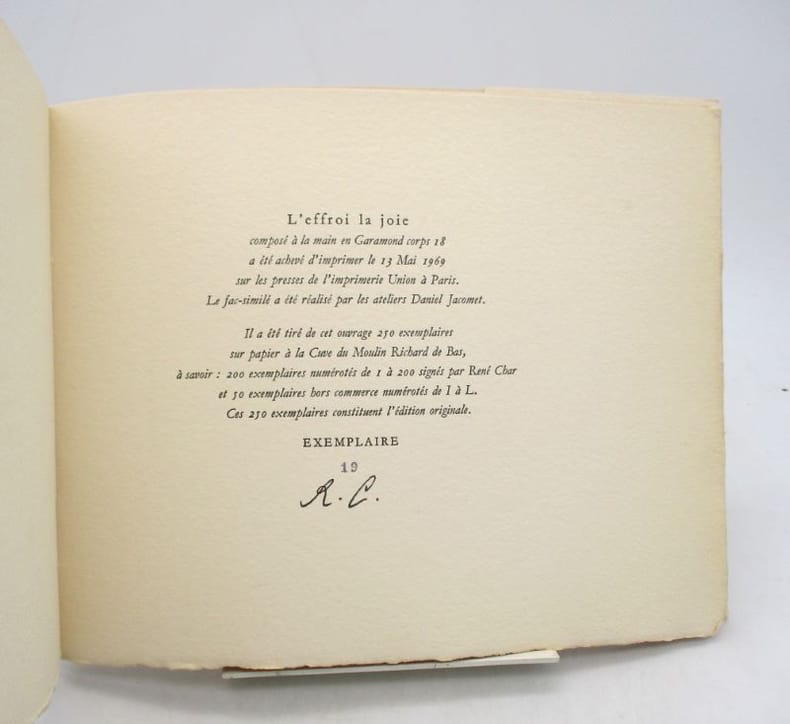 L'effroi la joie
composé à la main en Garamond corps 18
a été achevé d'imprimer le 13 Mai 1969
sur les presses de l'imprimerie Union à Paris.
Le fac-similé a été réalisé par les ateliers Daniel Jacomet.
Il a été tiré de cet ouvrage 250 exemplaires
sur papier à la Cuve du Moulin Richard de Bas,
à savoir : 200 exemplaires numérotés de 1 à 200 signés par René Char
et 50 exemplaires hors commerce numérotés de I à L.
Ces 250 exemplaires constituent l'édition originale.
EXEMPLAIRE
19
R. C.